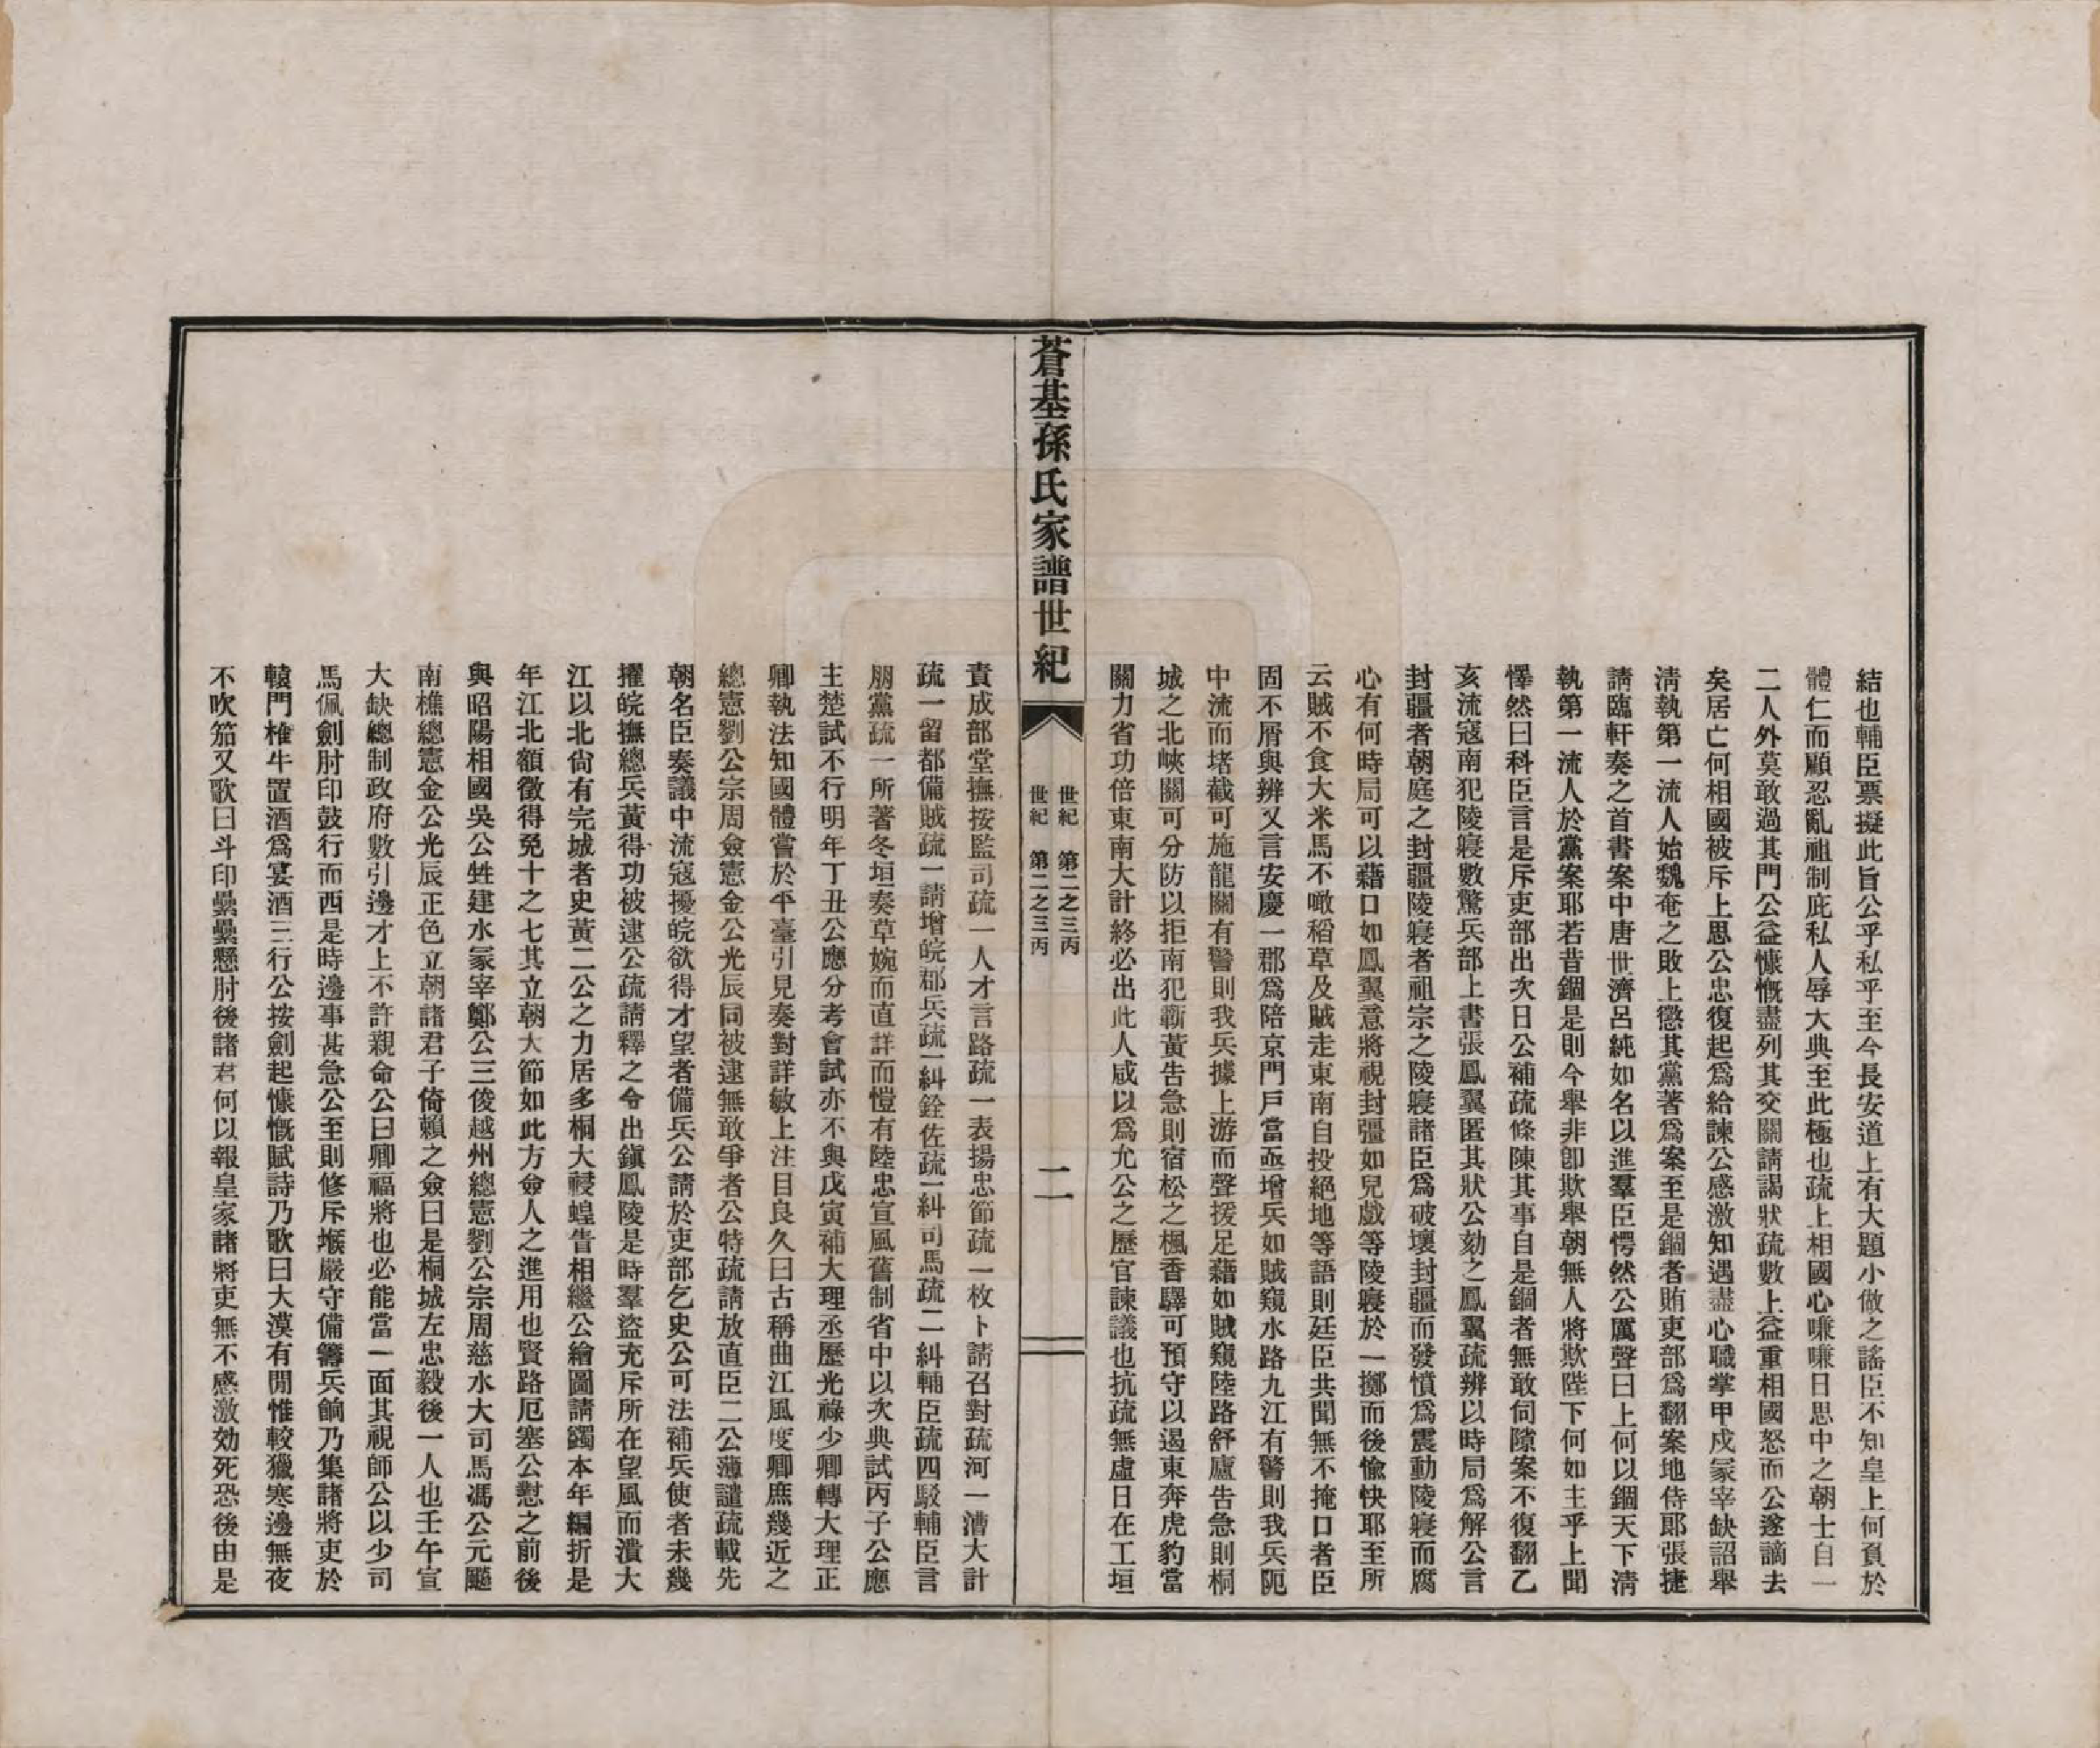 結也輔臣票擬此旨公乎私乎至今長安道上有大題小做之謠臣不知皇上何負於
體仁而顧忍亂祖制庇私人辱大典至此極也疏上相國心嗛嗛日思中之朝士自一
二人外莫敢過其門公益慷慨盡列其交關請謁狀疏數上益重相國怒而公遂謫去
矣居亡何相國被斥上思公忠復起爲給諫公感激知遇盡心職掌甲戍冢宰缺詔舉
淸執第一流人始魏奄之敗上懲其黨著爲案至是錮者賄吏部爲翻案地侍郎張捷
請臨軒奏之首書案中唐世濟呂純如名以進羣臣愕然公厲聲曰上何以錮天下淸
執第一流人於黨案耶若昔錮是則今舉非卽欺舉朝無人將欺陛下何如主乎上聞
懌然曰科臣言是斥吏部出次日公補疏條陳其事自是錮者無敢伺隙案不復翻乙
亥流寇南犯陵寢數驚兵部上書張鳳翼匿其狀公劾之鳳翼疏辨以時局爲解公言
封疆者朝庭之封疆陵寢者祖宗之陵寢諸臣爲破壞封疆而發憤爲震動陵寢而腐
心有何時局可以藉口如鳳翼意將視封彊如兒戲等陵寢於一擲而後愉快耶至所
云賊不食大米馬不噉稻草及賊走東南自投絕地等語則廷臣共聞無不掩口者臣
固不屑與辨又言安慶一郡爲陪京門戶當亟增兵如賊窺水路九江有警則我兵阨
中流而堵截可施龍關有警則我兵據上游而聲援足藉如賊窺陸路舒廬告急則桐
城之北峽關可分防以拒南犯蘄黃告急則宿松之楓香驛可預守以遏東奔虎豹當
關力省功倍東南大計終必出此人咸以爲允公之歷官諫議也抗疏無虛日在工垣
蒼基孫氏家譜世紀
世紀 第二之三丙
世紀 第二之三丙
二
責成部堂撫按監司疏一人才言路疏一表揚忠節疏一枚卜請召對疏河一漕大計
疏一留都備賊疏一請增皖郡兵疏一糾銓佐疏一糾司馬疏二糾輔臣疏四駁輔臣言
朋黨疏一所著冬垣奏草婉而直詳而愷有陸忠宣風舊制省中以次典試丙子公應
主楚試不行明年丁丑公應分考會試亦不與戊寅補大理丞歷光祿少卿轉大理正
卿執法知國體嘗於平臺引見奏對詳敏上注目良久曰古稱曲江風度卿庶幾近之
總憲劉公宗周僉憲金公光辰同被逮無敢爭者公特疏請放直臣二公薄譴疏載先
朝名臣奏議中流寇擾皖欲得才望者備兵公請於吏部乞史公可法補兵使者未幾
擢皖撫總兵黃得功被逮公疏請釋之令出鎭鳳陵是時羣盜充斥所在望風而潰大
江以北尙有完城者史黃二公之力居多桐大祲蝗告相繼公繪圖請蠲本年編折是
年江北額徵得免十之七其立朝大節如此方僉人之進用也賢路厄塞公懟之前後
與昭陽相國吳公甡建水冢宰鄭公三俊越州總憲劉公宗周慈水大司馬馮公元飈
南樵總憲金公光辰正色立朝諸君子倚賴之僉曰是桐城左忠毅後一人也壬午宣
大缺總制政府數引邊才上不許親命公曰卿福將也必能當一面其視師公以少司
馬佩劍肘印鼓行而西是時邊事甚急公至則修斥堠嚴守備籌兵餉乃集諸將吏於
轅門椎牛置酒爲宴酒三行公按劍起慷慨賦詩乃歌曰大漠有閒惟較獵寒邊無夜
不吹笳又歌曰斗印纍纍懸肘後諸君何以報皇家諸將吏無不感激効死恐後由是